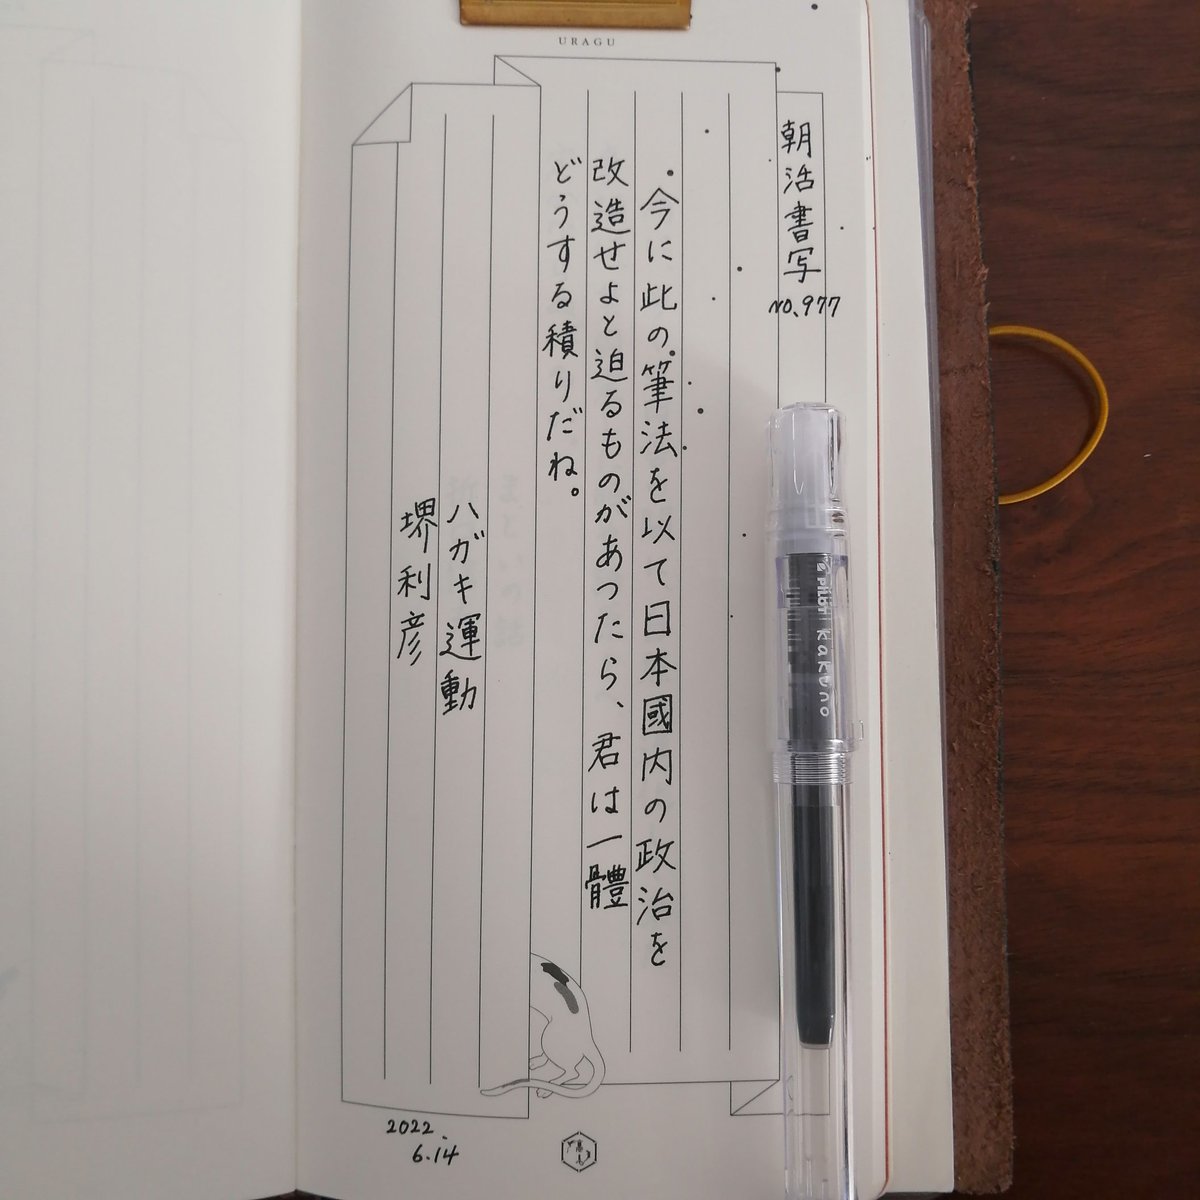 URAGU
朝活書写
NO.977
今に此の筆法を以て日本國内の政治を
改造せよと迫るものがあつたら、君は一體
どうする積りだね。
ハガキ運動
堺利彦
2022.
6.14
PILOT kakuno